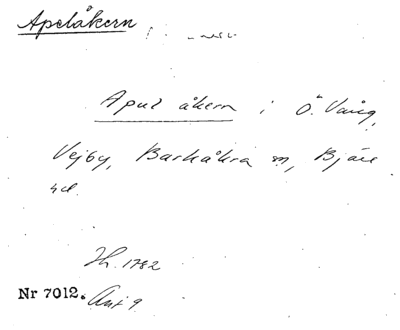 Apelåkern
Apul åkern i Ö. Vång,
Vejby, Barkåkra sn, Bjäre
hd.
Lh. 1782
Nr 7012. Akt 9.